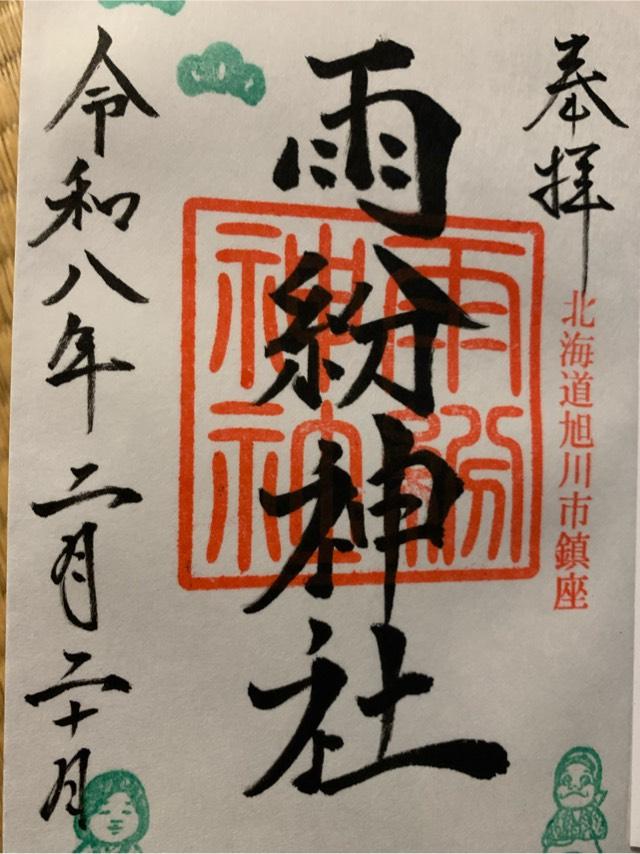 奉拝
北海道旭川市鎮座
雨紛神社
雨紛
神社
令和八年二月二十日